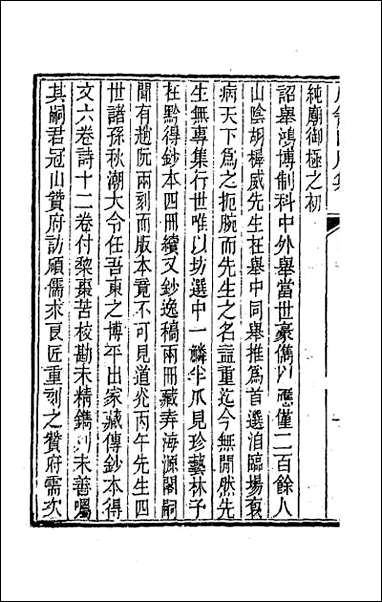 純廟御極之初
詔舉鴻博制科中外舉當世豪儁以應僅二百餘人
山陰胡穉威先生在舉中同舉推為首選洎臨場𠋣
病天下為之扼腕而先生之名益重迄今無閒然先
生無專集行世唯以坊選中一鱗半爪見珍藝林予
在黔得鈔本四冊續又鈔逸稿兩冊藏弆海源閣嗣
聞有趙阮兩刻而版本竟不可見道光丙午先生四
世諸孫秋潮大令任吾東之博平出家藏傳鈔本得
文六卷詩十二卷付黎棗苦校勘未精鐫刊未善囑
其嗣君冠山贊府訪顧儒求良匠重刻之贊府需次